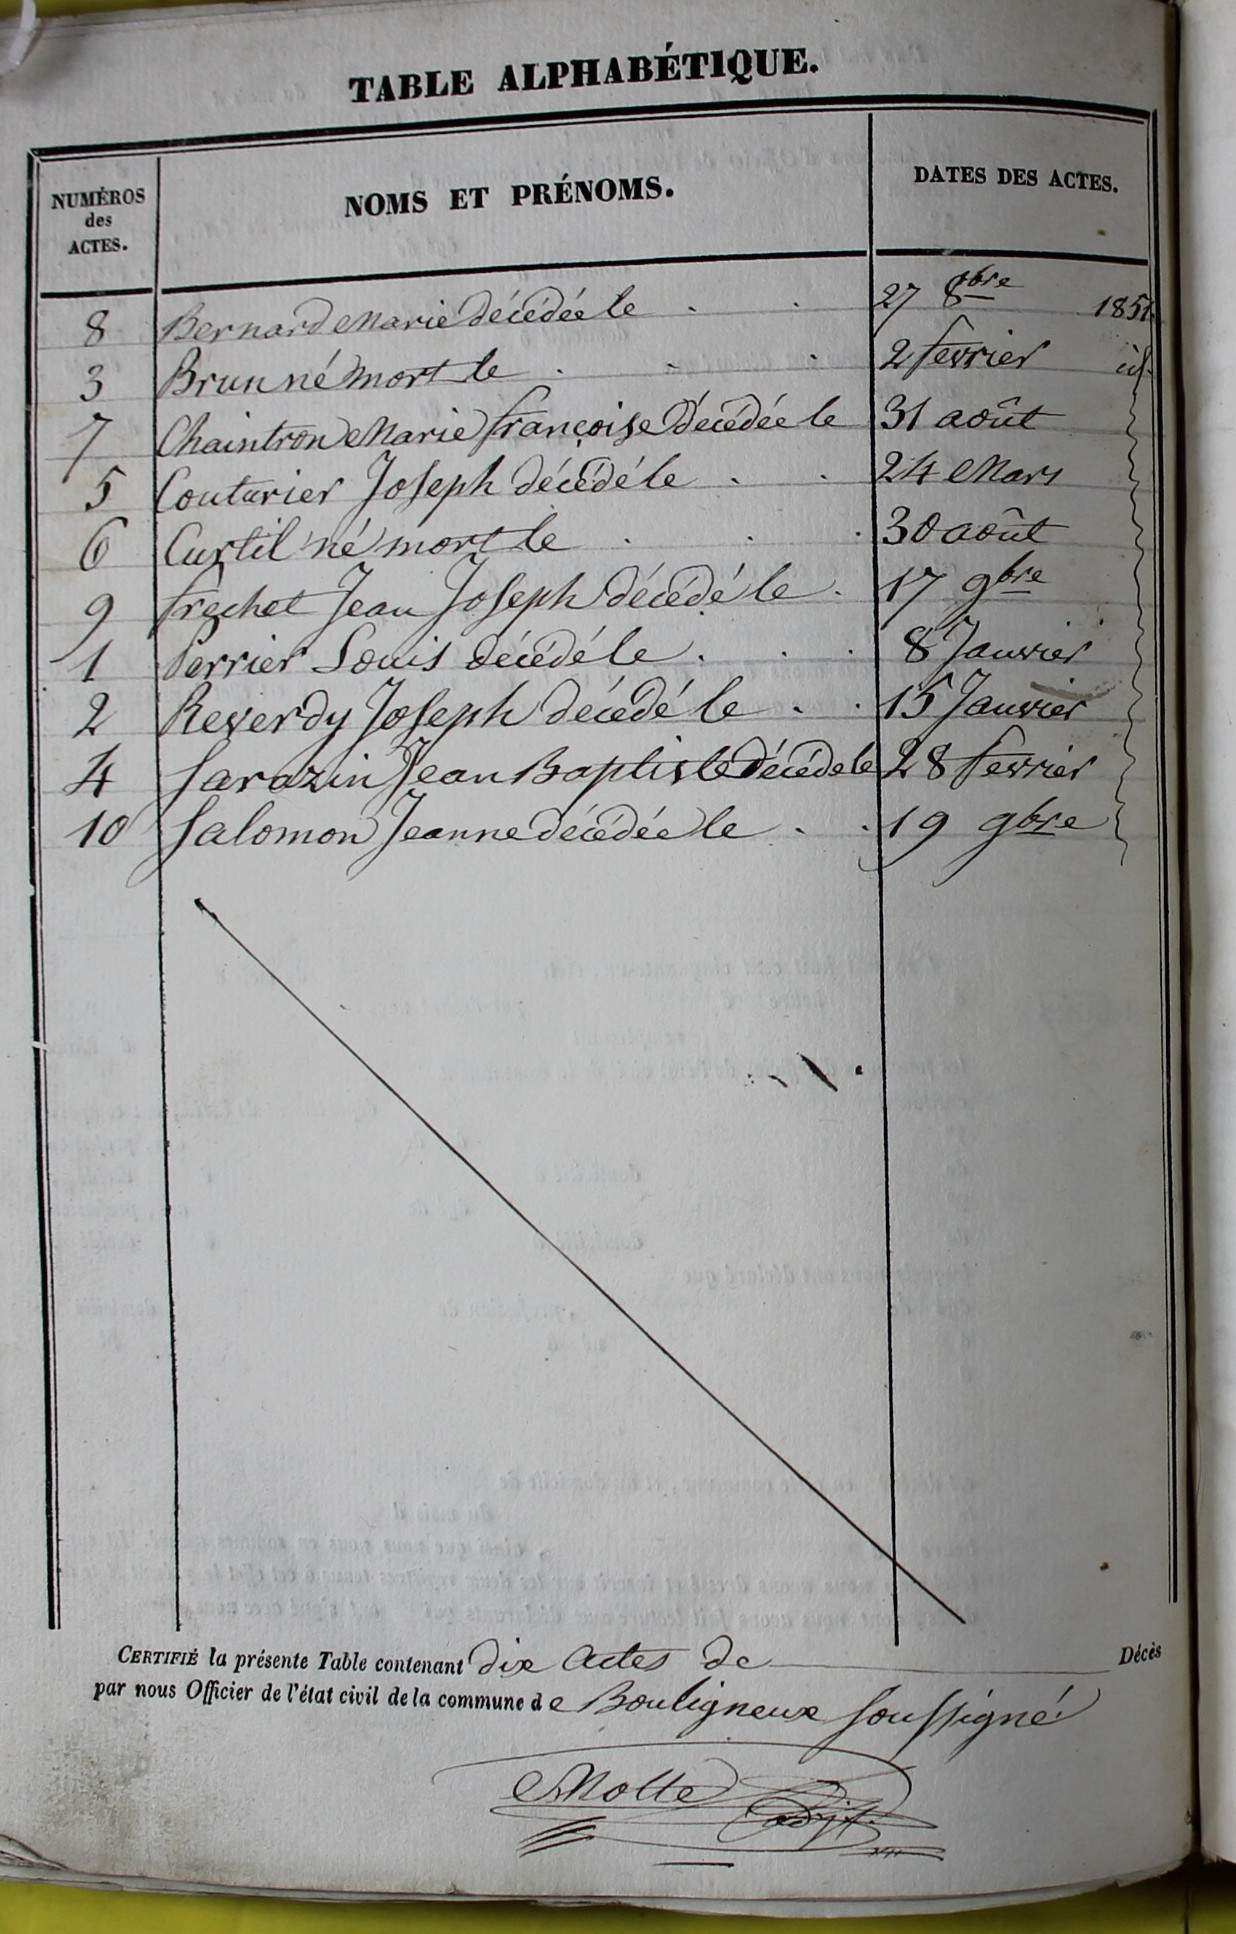 TABLE ALPHABÉTIQUE.
NUMÉROS des ACTES. NOMS ET PRÉNOMS. DATES DES ACTES.
8 Bernard Marie décédée le . . 27 8bre 1851.
3 Brun né mort le . . . 2 fevrier id.
7 Chaintron Marie françoise décédée le 31 août
5 Couturier Joseph décédé le . . 24 Mars
6 Curtil né mort le . . . 30 août
9 frechet Jean Joseph décédé le . 17 9bre
1 Perrier Louis décédé le . . . 8 Janvier
2 Reverdy Joseph décédé le . . 15 Janvier
4 Sarazin Jean Baptiste décédé le 28 fevrier
10 Salomon Jeanne décédée le . . 19 9bre
CERTIFIÉ la présente Table contenant dix actes de Décès
par nous Officier de l'état civil de la commune de Bouligneux soussigné
Molle adjt.